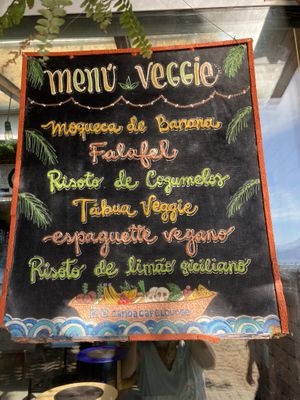 menú veggie
moqueca de Banana
Falafel
Risoto de Cogumelos
Tábua Veggie
espaguette vegano
Risoto de limão siciliano